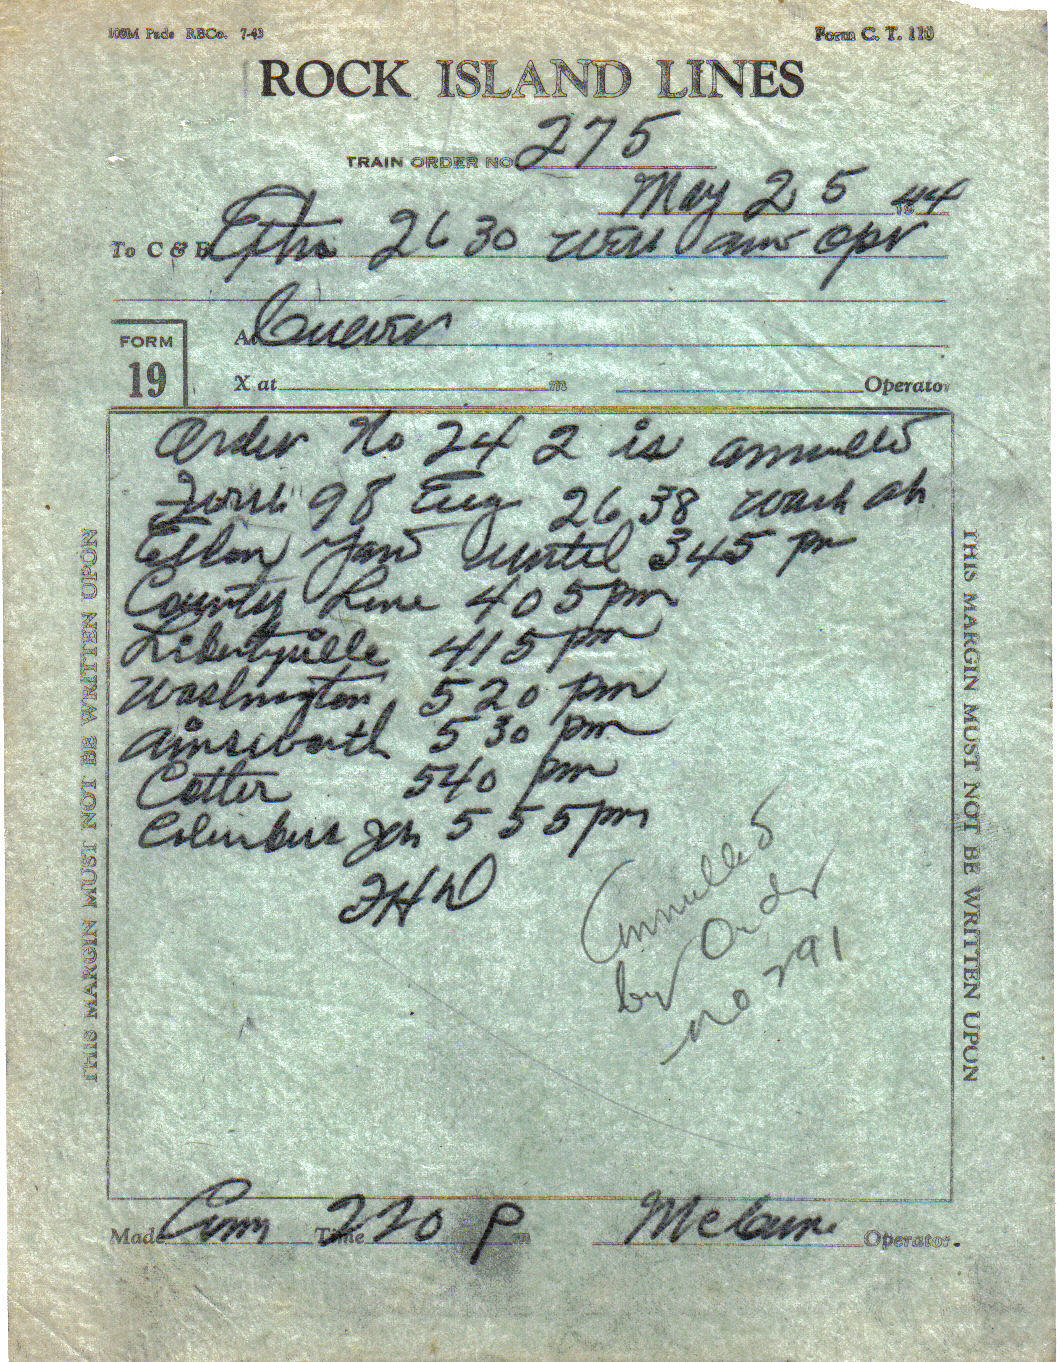 100M Pads RBCo. 7-43 Form C. T. 110
ROCK ISLAND LINES
TRAIN ORDER NO. 275
May 25 1944
To C & E Extra 2630 West and Opr
At
FORM
19
X at m Operator
Order No 242 is annulled
98 Eng 2638 wait at
Eldon Yard until 345 pm
County Line 405 pm
Libertyville 415 pm
Washington 520 pm
Ainsworth 530 pm
Cotter 540 pm
Columbus Jct 555 pm
JHD
Annulled
by Order
no 291
Made Com Time 220 P m Operator.
THIS MARGIN MUST NOT BE WRITTEN UPON
THIS MARGIN MUST NOT BE WRITTEN UPON